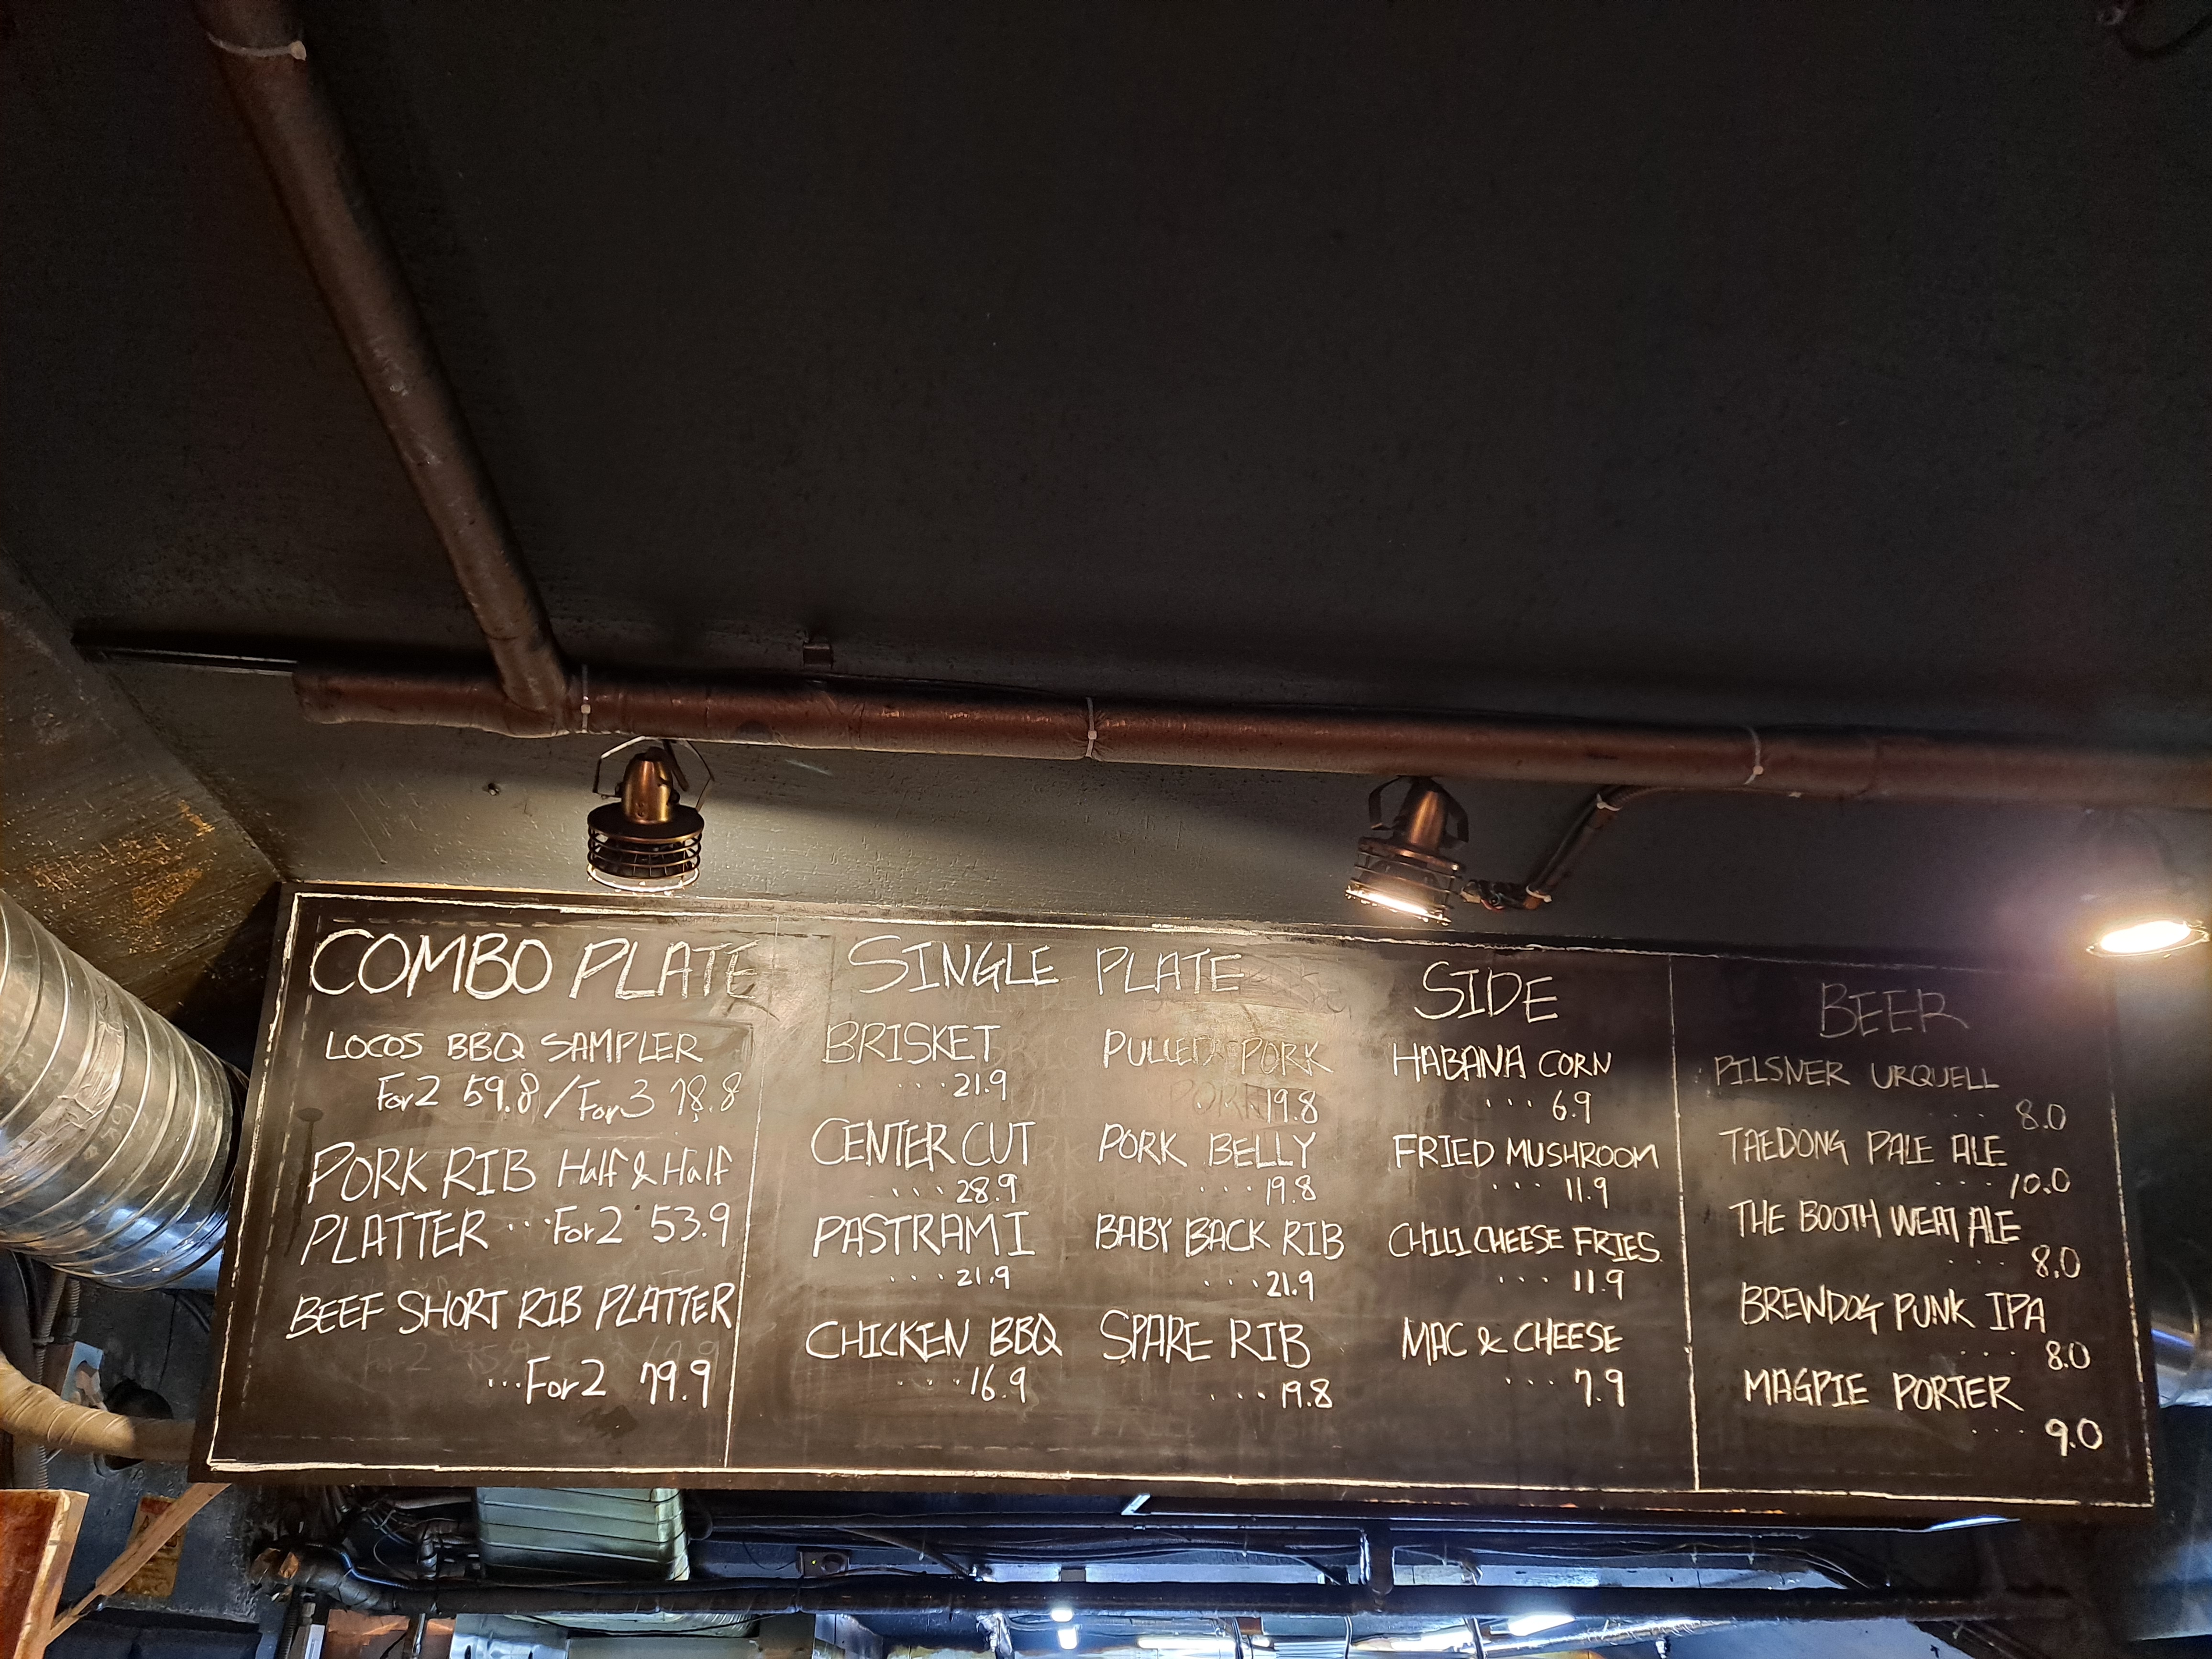 COMBO PLATE
LOCOS BBQ SAMPLER
For2 59.8 / For3 78.8
PORK RIB Half & Half
PLATTER ... For2 53.9
BEEF SHORT RIB PLATTER
... For2 79.9
SINGLE PLATE
BRISKET
.... 21.9
CENTER CUT
.... 28.9
PASTRAMI
.... 21.9
CHICKEN BBQ
.... 16.9
PULLED PORK
19.8
PORK BELLY
.... 19.8
BABY BACK RIB
.... 21.9
SPARE RIB
.... 19.8
SIDE
HABANA CORN
... 6.9
FRIED MUSHROOM
... 11.9
CHILI CHEESE FRIES
... 11.9
MAC & CHEESE
... 7.9
BEER
PILSNER URQUELL
... 8.0
TAEDONG PALE ALE
.... 10.0
THE BOOTH WEAT ALE
.... 8.0
BREWDOG PUNK IPA
.... 8.0
MAGPIE PORTER
... 9.0